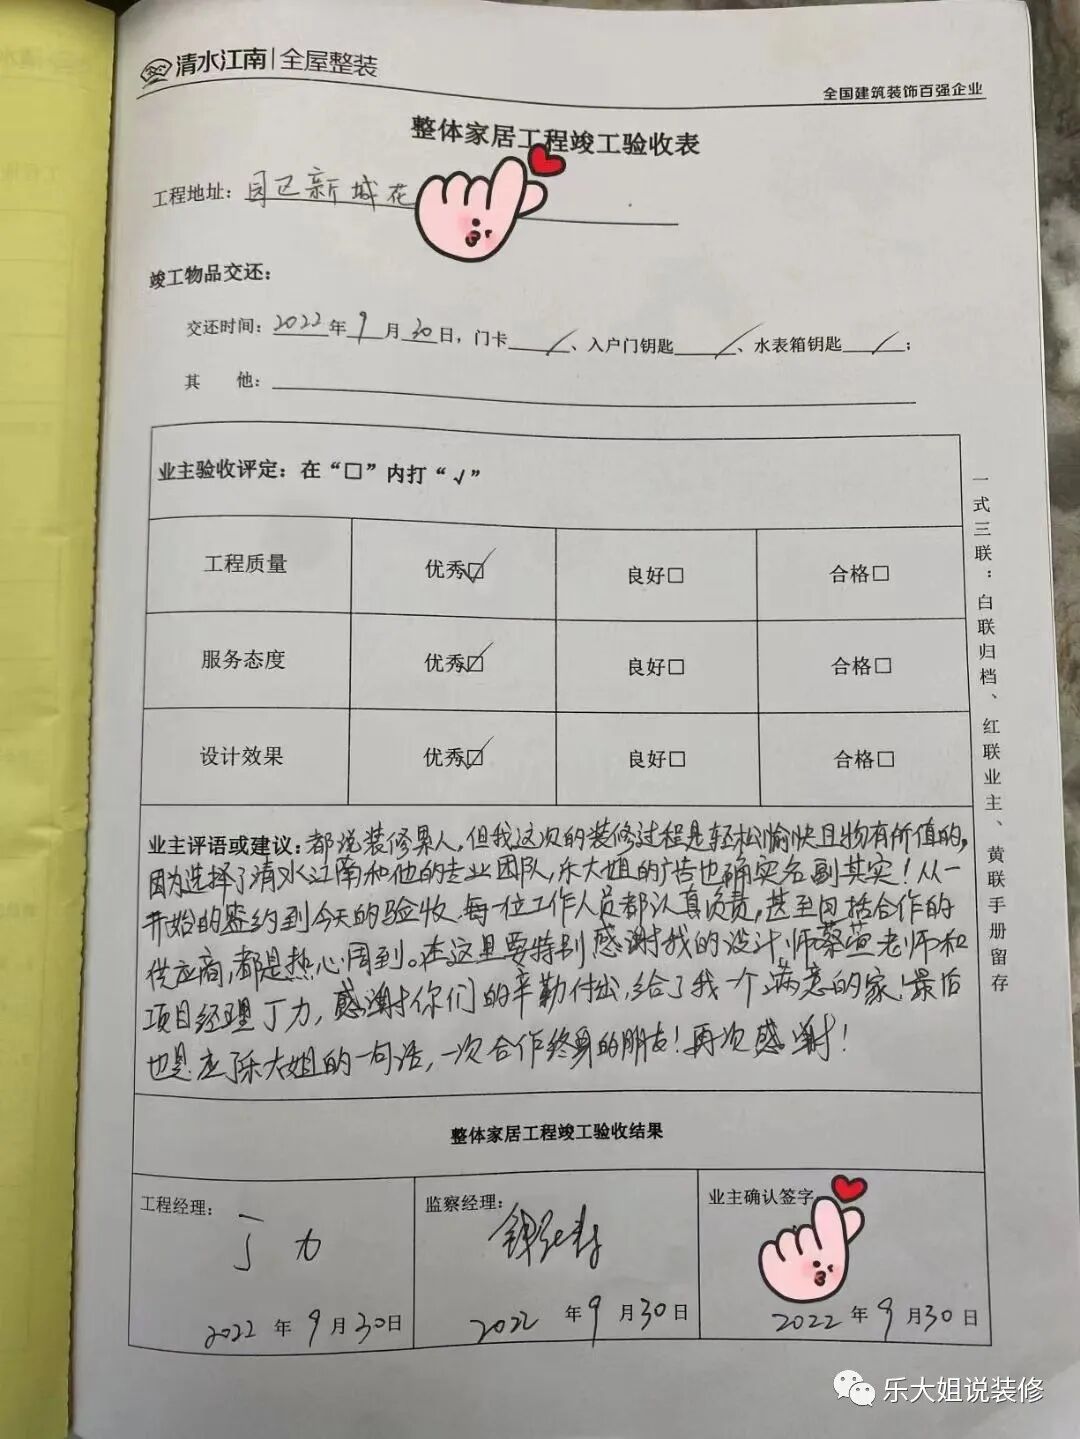 清水江南|全屋整装
全国建筑装饰百强企业
整体家居工程竣工验收表
工程地址：园区新城花
竣工物品交还：
交还时间：2022年9月30日，门卡 / 、入户门钥匙 / 、水表箱钥匙 / ；
其 他：
业主验收评定：在“□”内打“√”
工程质量 优秀☑ 良好□ 合格□
服务态度 优秀☑ 良好□ 合格□
设计效果 优秀☑ 良好□ 合格□
业主评语或建议：都说装修累人，但我这次的装修过程是轻松愉快且物有所值的，
因为选择了清水江南和他的专业团队，乐大姐的广告也确实名副其实！从一
开始的签约到今天的验收，每一位工作人员都认真负责，甚至包括合作的
供应商，都是热心周到。在这里要特别感谢我的设计师蔡萱老师和
项目经理丁力，感谢你们的辛勤付出，给了我一个满意的家！最后
也是应了乐大姐的一句话，一次合作终身的朋友！再次感谢！
一式三联：白联归档、红联业主、黄联手册留存
整体家居工程竣工验收结果
工程经理： 监察经理： 业主确认签字
丁力
2022年9月30日 2022年9月30日 2022年9月30日
乐大姐说装修